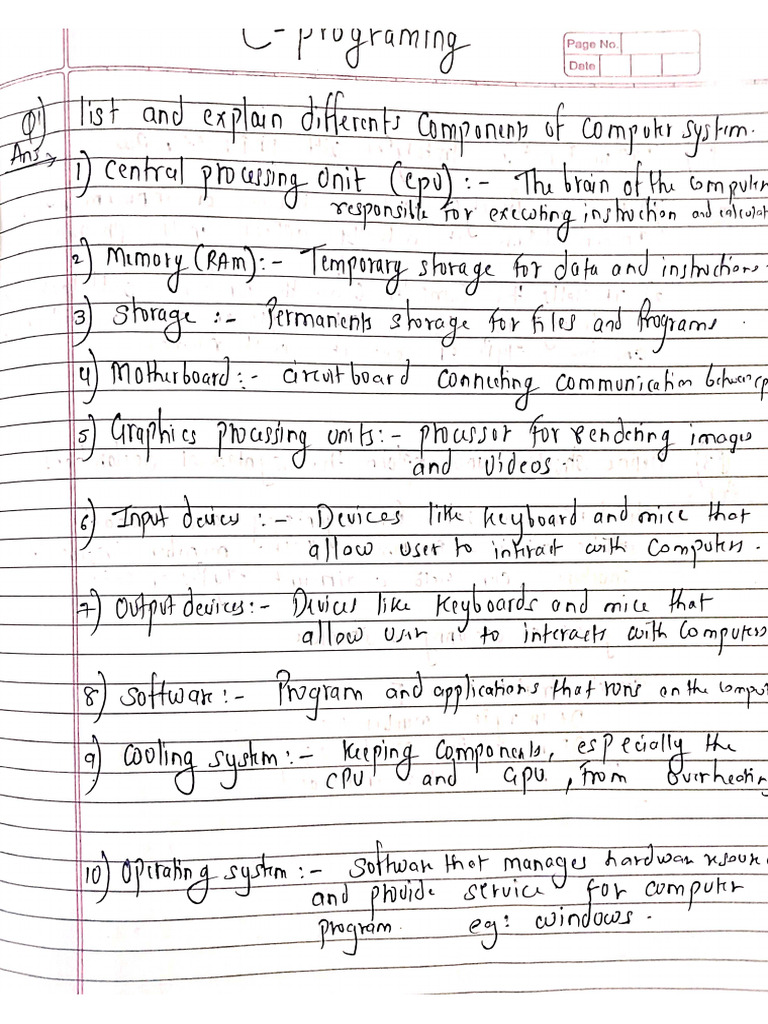 C-programing
Page No.
Date
Q1) list and explain differents components of computer system.
Ans→
1) Central processing Unit (cpu) :- The brain of the computer
responsible for executing instruction and calculat
2) Memory (RAM) :- Temporary storage for data and instructions
3) Storage :- Permanents storage for files and Programs .
4) Motherboard :- circuit board connecting communication between cp
5) Graphics processing units :- processor for rendering images
and videos .
6) Input devices :- Devices like keyboard and mice that
allow user to interact with computers .
7) Output devices :- Devices like Keyboards and mice that
allow user to interacts with computers
8) Software :- Program and applications that runs on the comput
9) Cooling system :- Keeping components, especially the
CPU and GPU , from overheating
10) Operating system :- Software that manages hardware resour
and provide service for computer
program eg: windows .